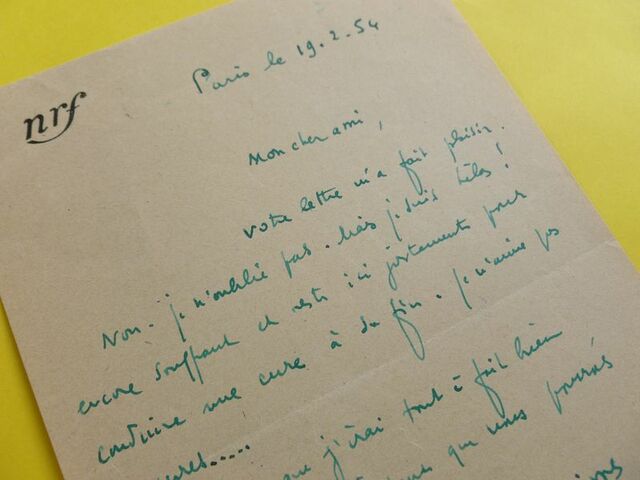 nrf
Paris le 19.2.54
Mon cher ami,
votre lettre m'a fait plaisir.
Non. je n'oublie pas. Mais je suis hélas!
encore souffrant et reste ici justement pour
conduire une cure à sa fin. je n'aime pas
j'irai tout à fait bien
que vous pourrés